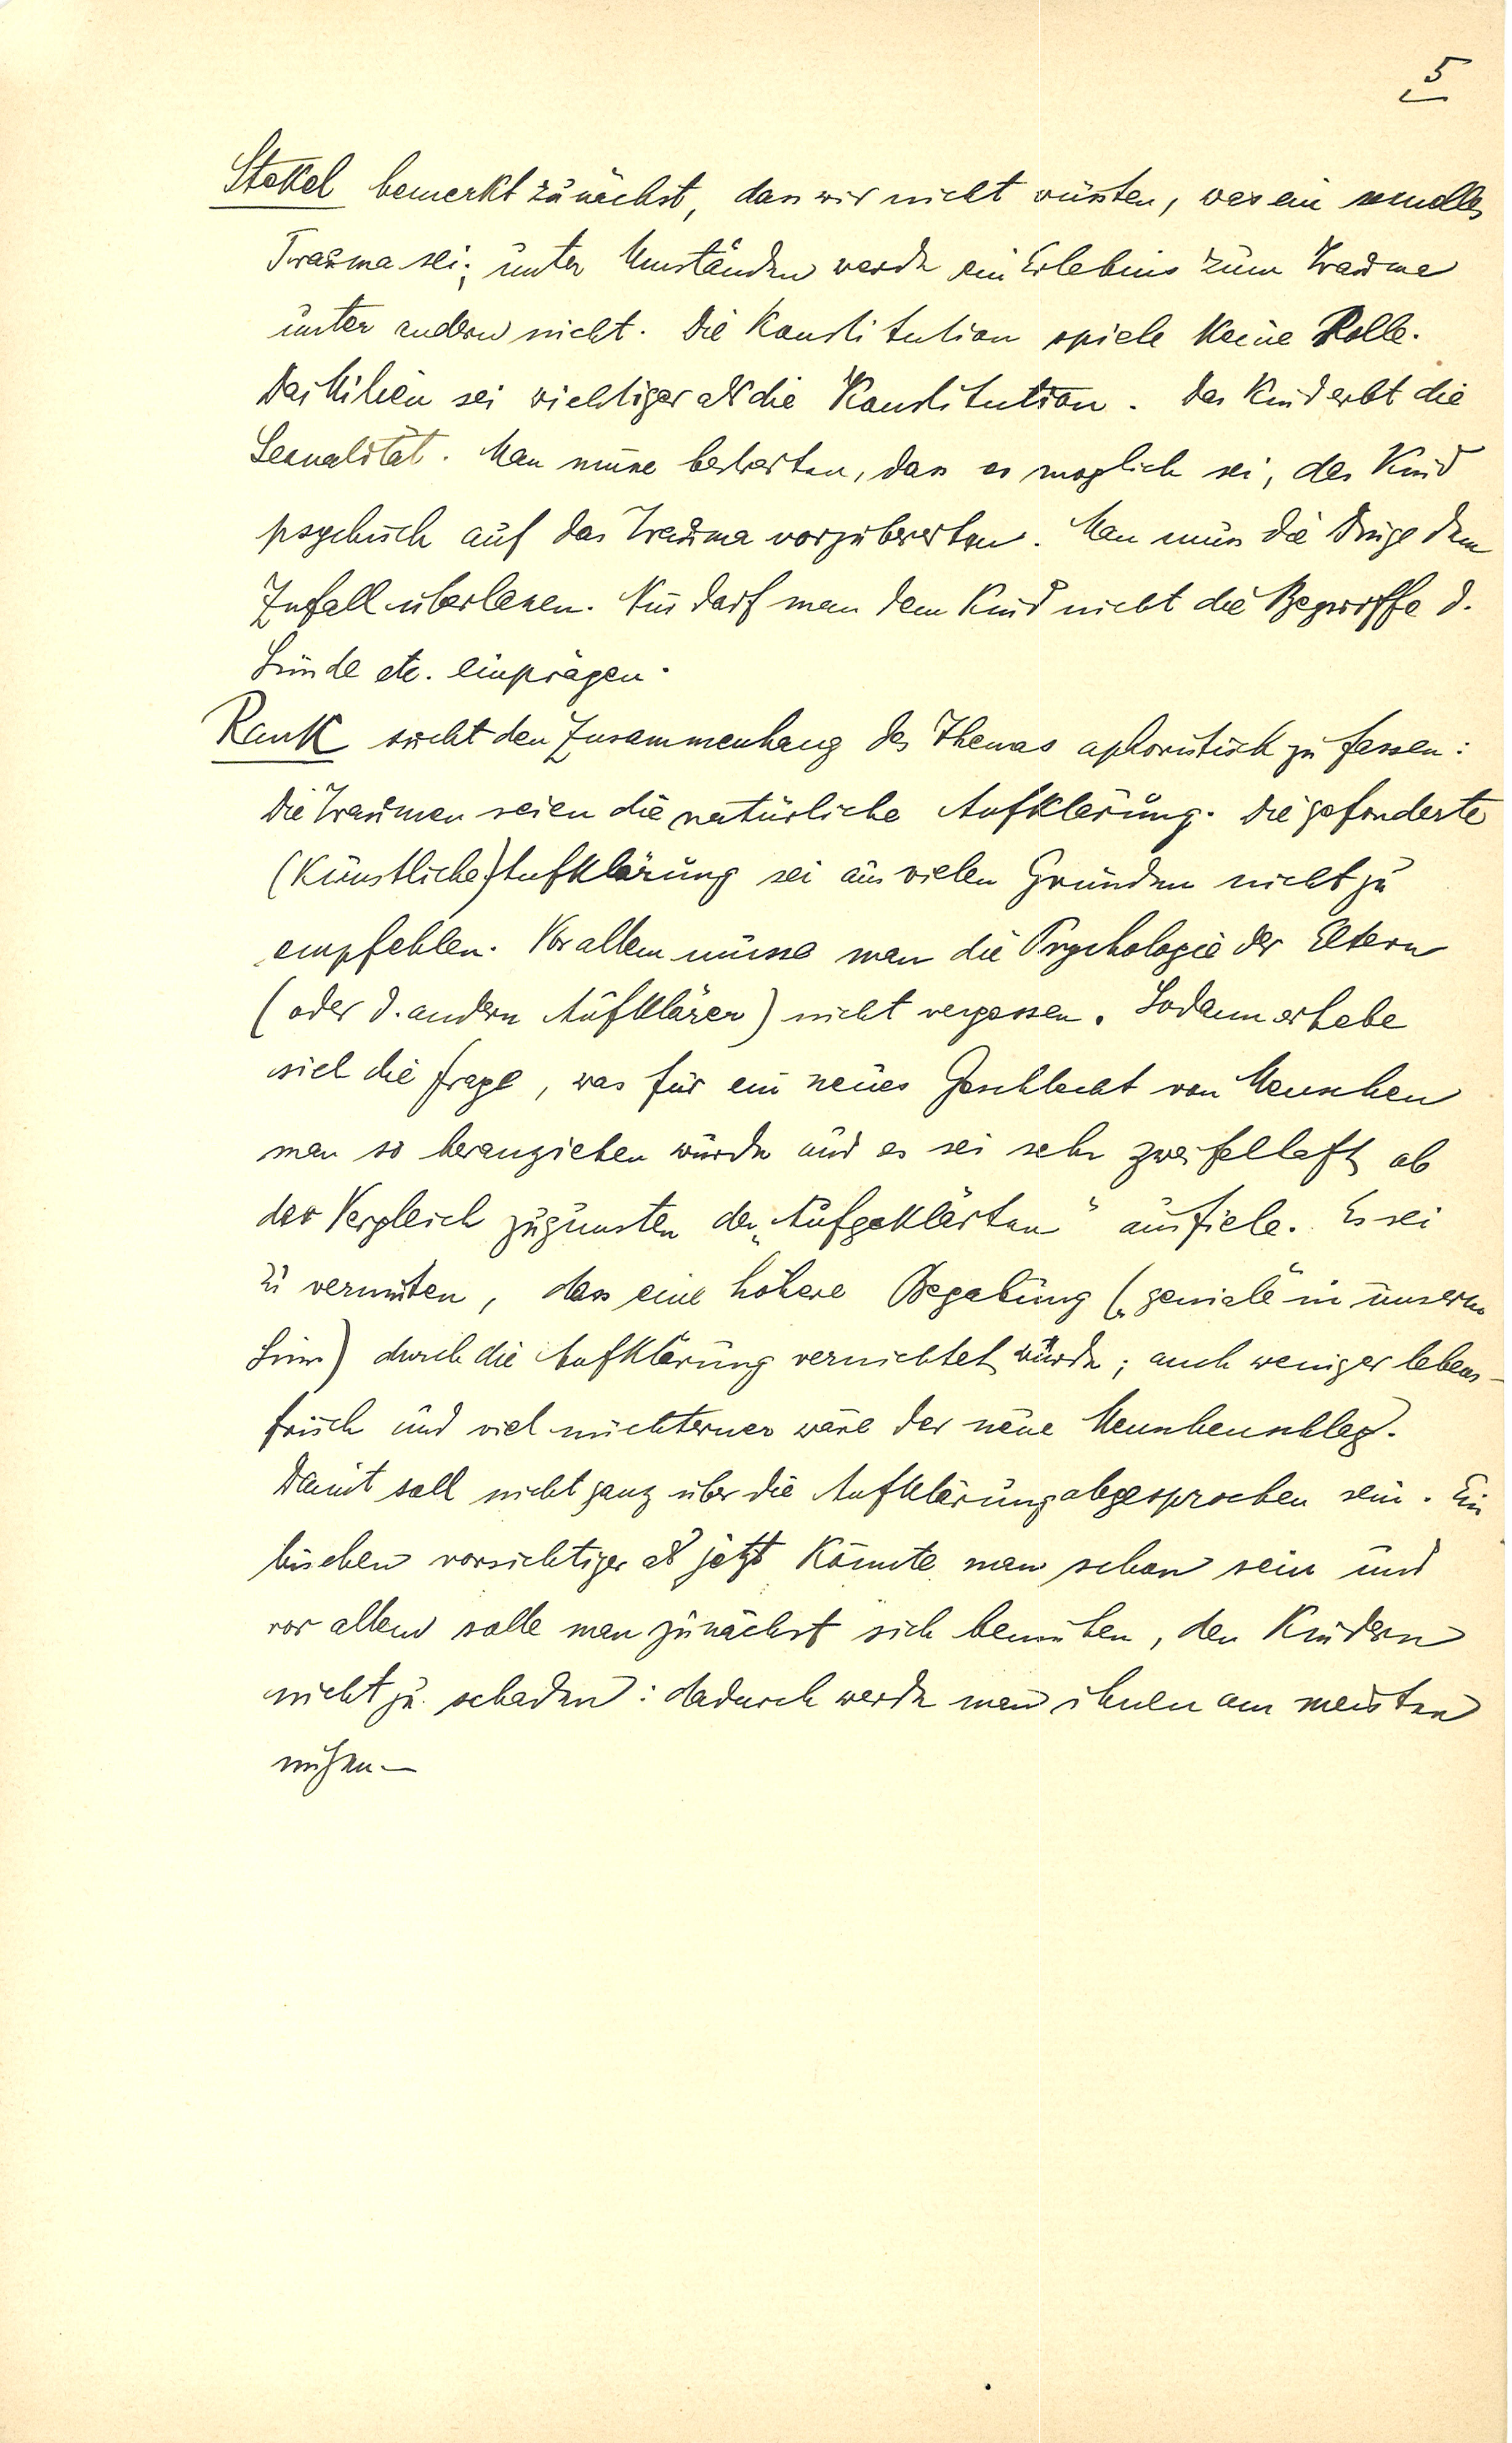 5
Stekel bemerkt zunächst, dass wir nicht wüssten, was ein sexuelles
Trauma sei; unter Umständen werde ein Erlebnis zum Trauma
unter andern nicht. Die Konstitution spiele keine Rolle.
Das Milieu sei wichtiger als die Konstitution. Das Kind erbt die
Sexualität. Man müsse bestreiten, dass es möglich sei, das Kind
psychisch auf das Trauma vorzubereiten. Man muss die Dinge dem
Zufall überlassen. Nur darf man dem Kind nicht die Begriffe d.
Sünde etc. einprägen.
Rank sucht den Zusammenhang des Themas aphoristisch zu fassen:
die Traumen seien die natürliche Aufklärung. Die geforderte
(künstliche) Aufklärung sei aus vielen Gründen nicht zu
empfehlen. Vor allem müsse man die Psychologie der Eltern
(oder d. andern Aufklärer) nicht vergessen. Sodann erhebe
sich die Frage, was für ein neues Geschlecht von Menschen
man so heranziehen würde und es sei sehr zweifelhaft, ob
der Vergleich zugunsten der „Aufgeklärten“ ausfiele. Es sei
zu vermuten, dass eine höhere Begabung („geniale“ in unserm
Sinn) durch die Aufklärung vernichtet würde; auch weniger lebens-
frisch und viel nüchterner wäre der neue Menschenschlag.
Damit soll nicht ganz über die Aufklärung abgesprochen sein. Ein
bischen vorsichtiger als jetzt könnte man schon sein und
vor allem solle man zunächst sich bemühen, den Kindern
nicht zu schaden: dadurch werde man ihnen am meisten
nützen.—